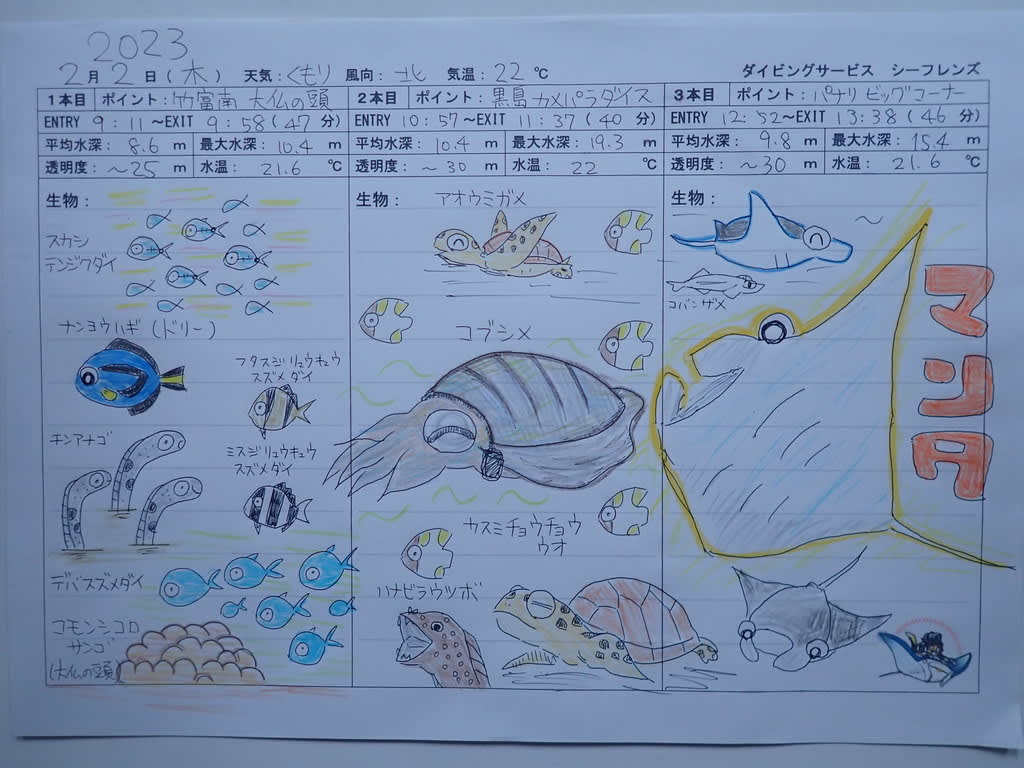 2023
2月2日(木) 天気:くもり 風向:北 気温:22℃ ダイビングサービス シーフレンズ
1本目 ポイント:竹富南 大仏の頭
ENTRY 9:11~EXIT 9:58(47分)
平均水深: 8.6 m 最大水深: 10.4 m
透明度: ~25 m 水温: 21.6 ℃
生物:
スカシ
テンジクダイ
ナンヨウハギ(ドリー)
フタスジリュウキュウ
スズメダイ
チンアナゴ
ミスジリュウキュウ
スズメダイ
デバスズメダイ
コモンシコロ
サンゴ
(大仏の頭)
2本目 ポイント:黒島 カメパラダイス
ENTRY 10:57~EXIT 11:37(40分)
平均水深: 10.4 m 最大水深: 19.3 m
透明度: ~30 m 水温: 22 ℃
生物: アオウミガメ
コブシメ
カスミチョウチョウ
ウオ
ハナビラウツボ
3本目 ポイント:パナリ ビッグコーナー
ENTRY 12:52~EXIT 13:38(46分)
平均水深: 9.8 m 最大水深: 15.4 m
透明度: ~30 m 水温: 21.6 ℃
生物:
コバンザメ
マンタ